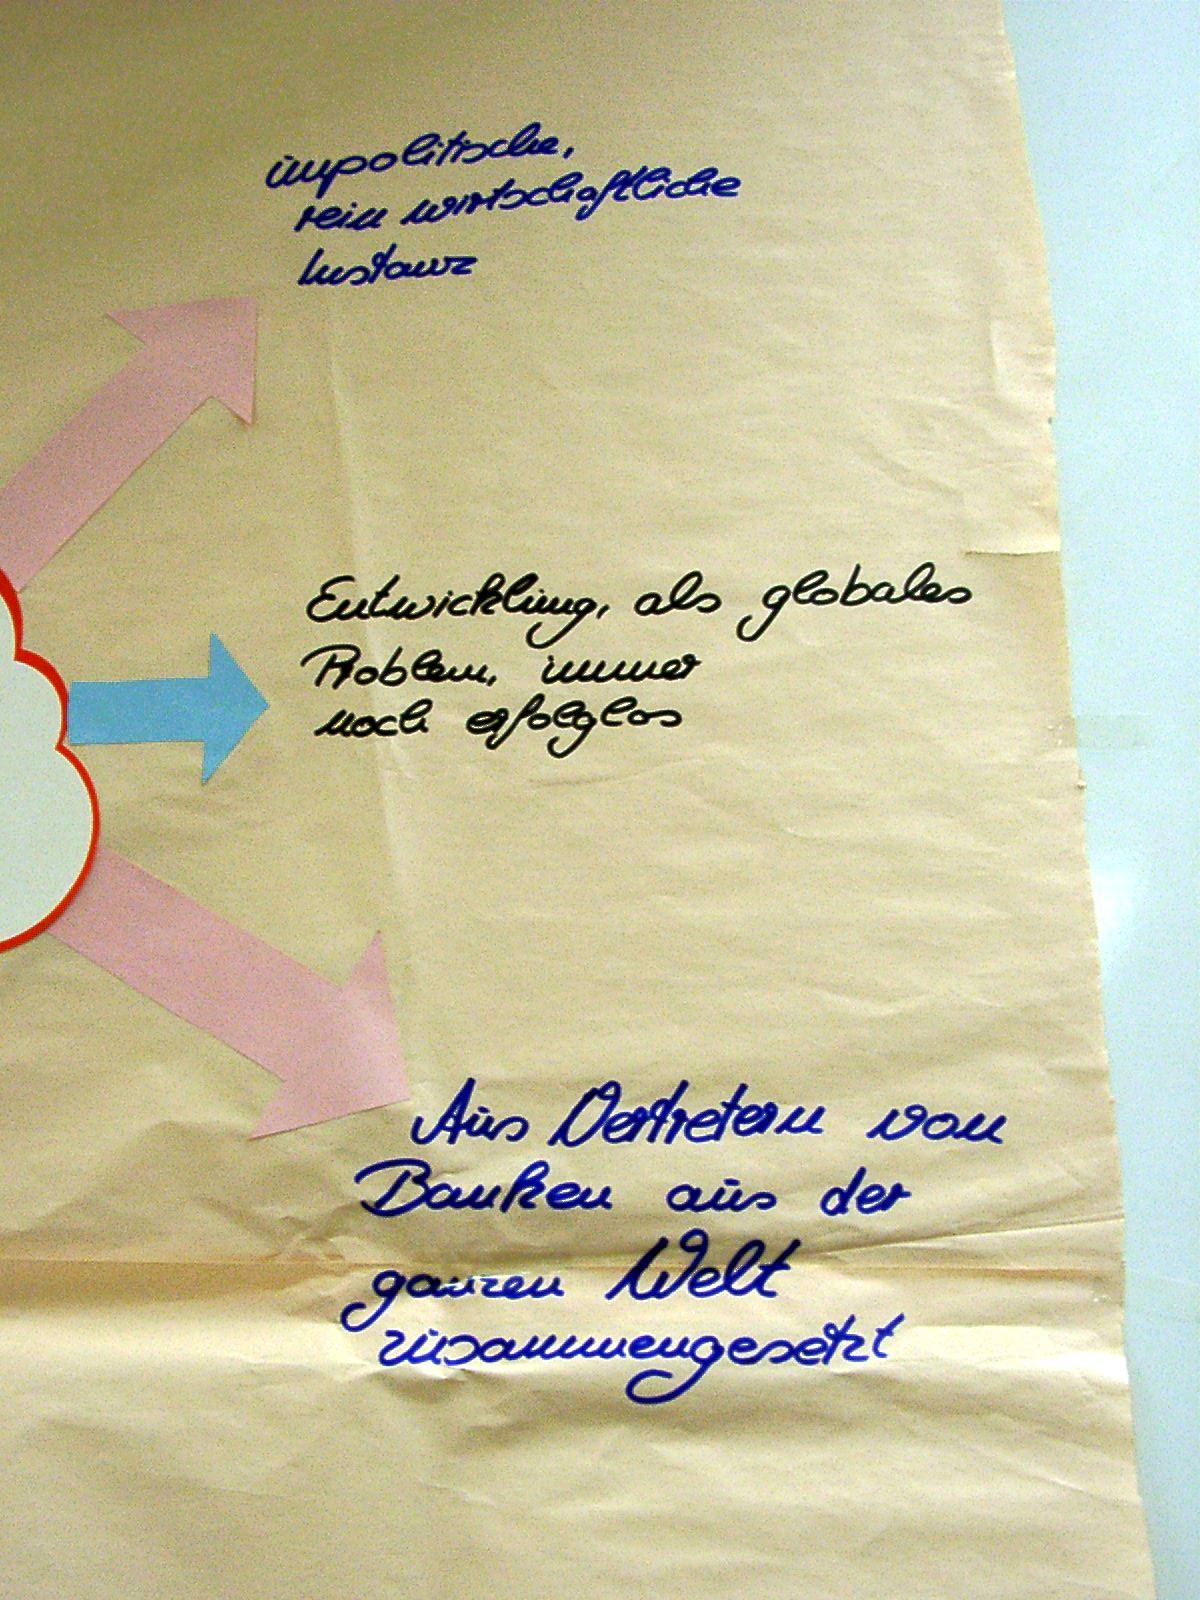 unpolitische,
rein wirtschaftliche
Instanz
Entwicklung, als globales
Problem, immer
noch erfolglos
Aus Vertretern von
Banken aus der
ganzen Welt
zusammengesetzt